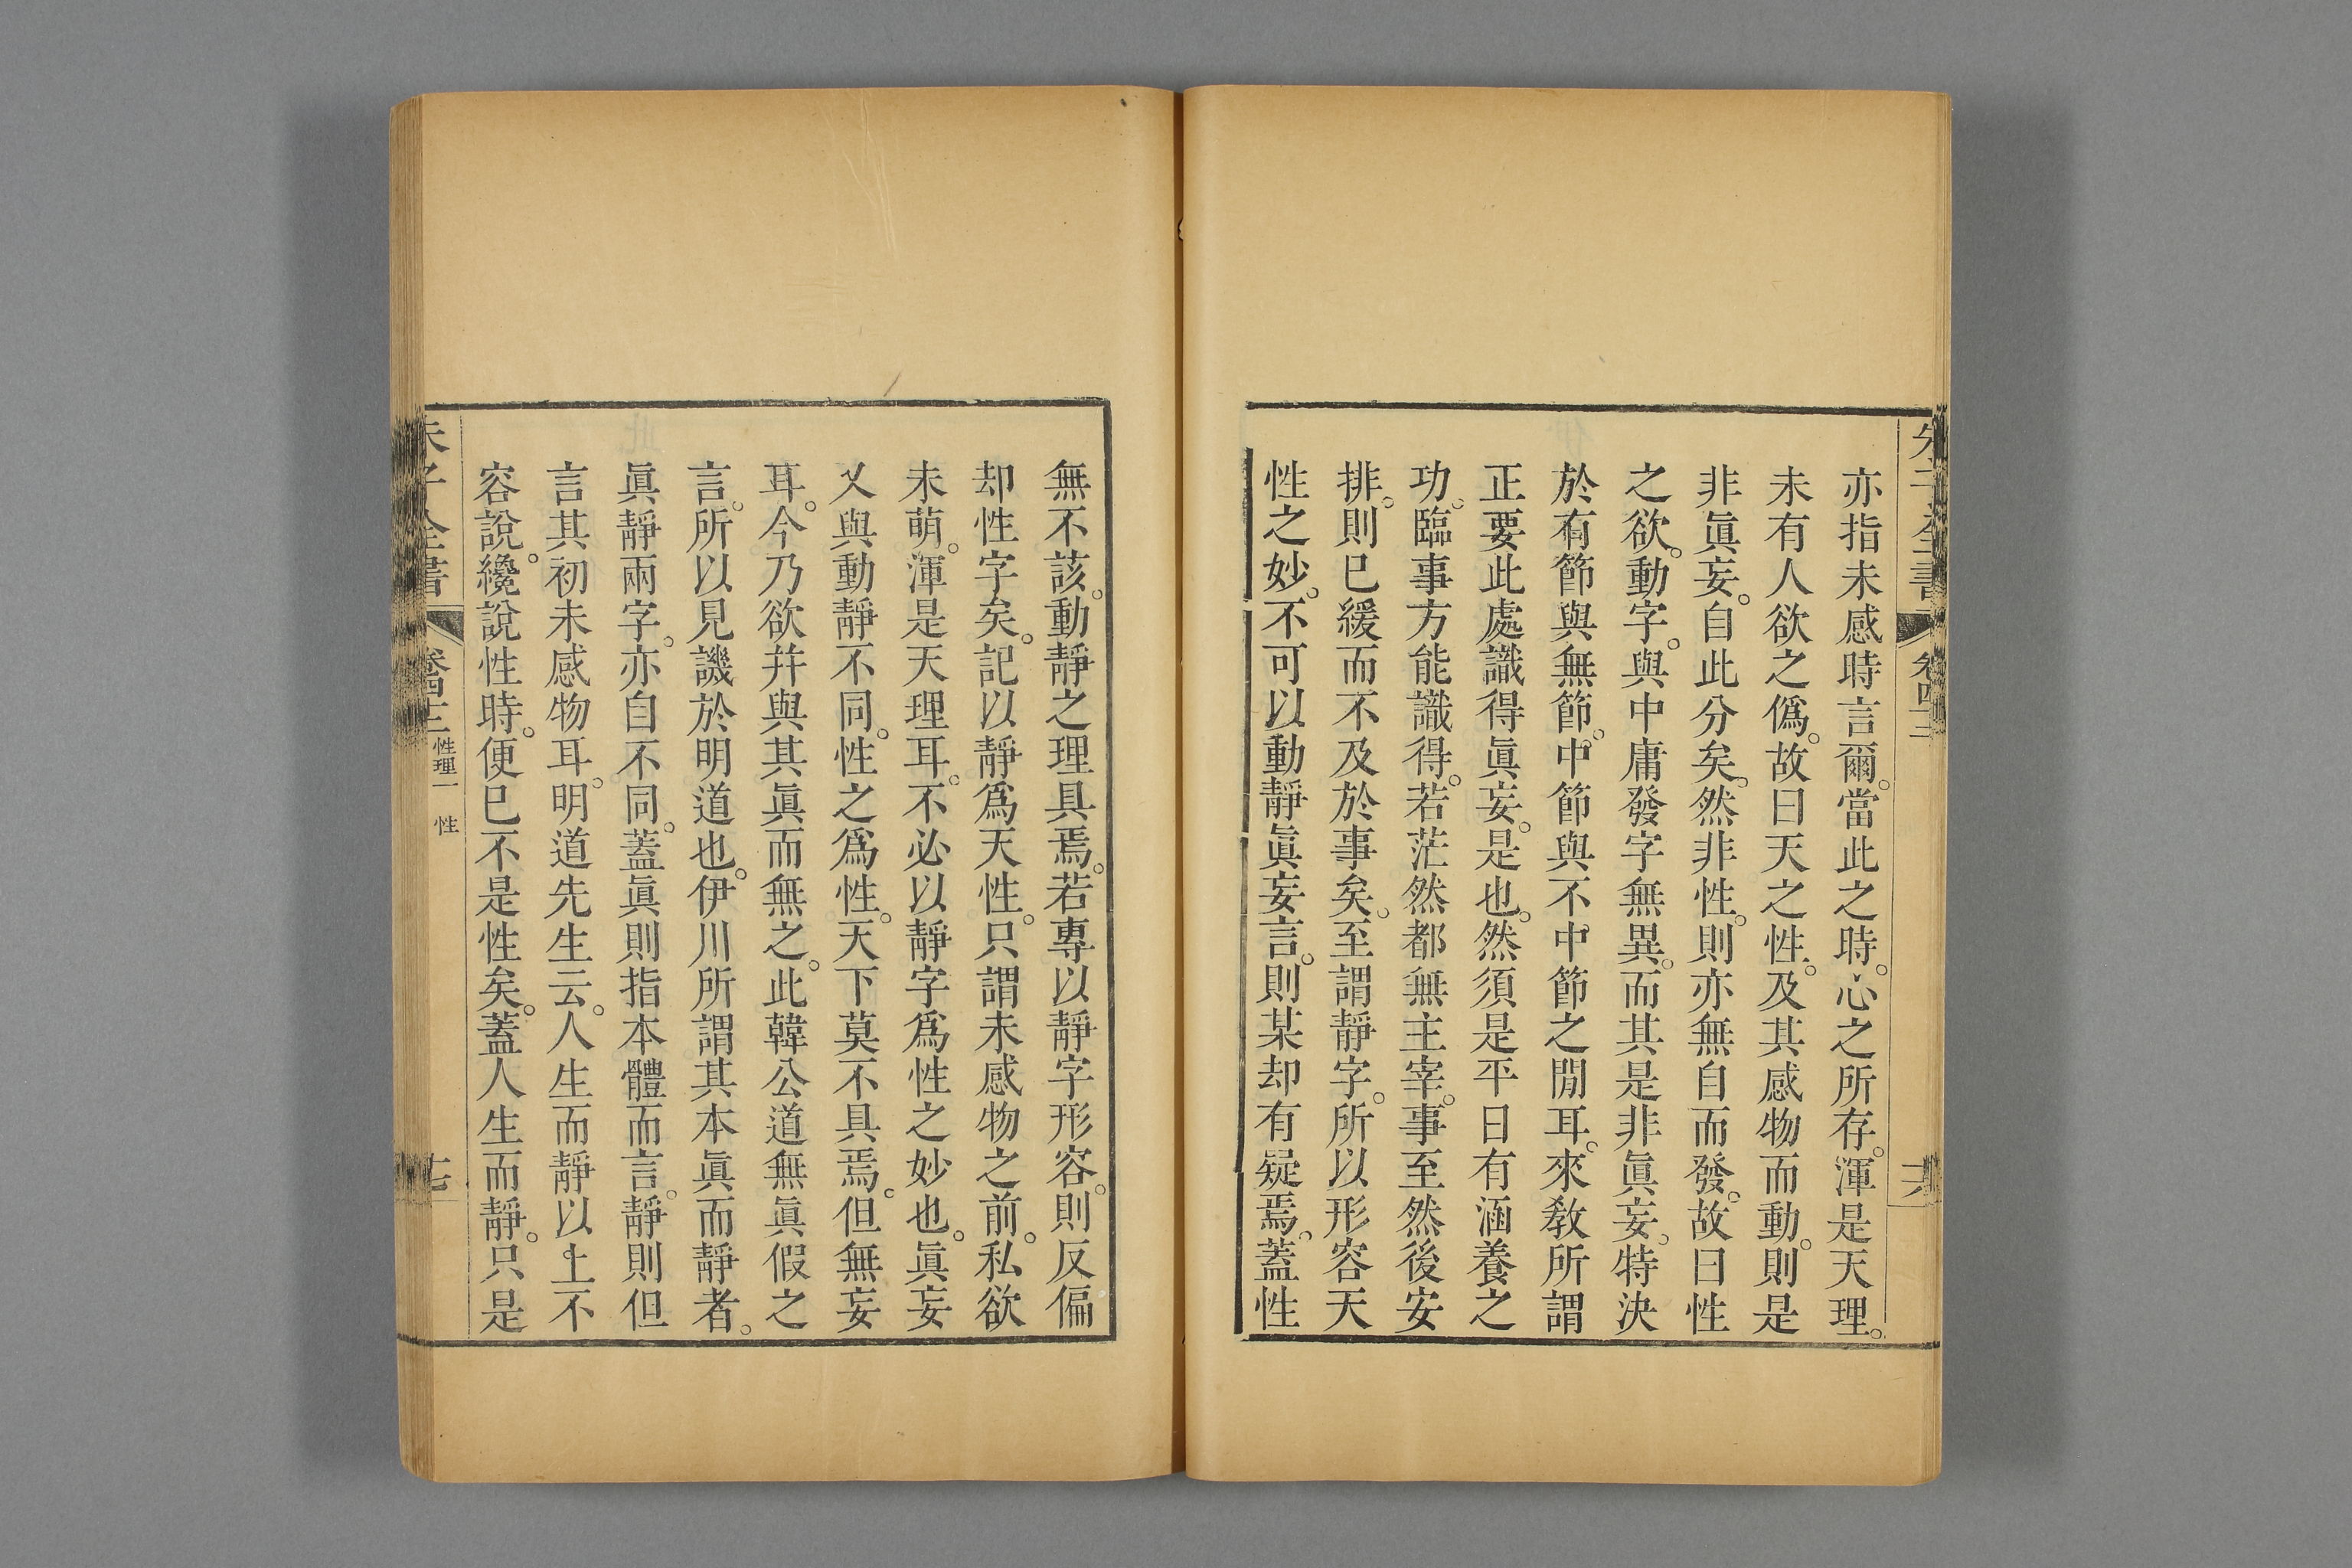 亦指未感時言爾。當此之時。心之所存。渾是天理。
未有人欲之僞。故曰天之性。及其感物而動。則是
非眞妄。自此分矣。然非性。則亦無自而發。故曰性
之欲。動字。與中庸發字無異。而其是非眞妄。特決
於有節與無節。中節與不中節之閒耳。來敎所謂
正要此處識得眞妄。是也。然須是平日有涵養之
功。臨事方能識得。若茫然都無主宰。事至然後安
排。則已緩而不及於事矣。至謂靜字。所以形容天
性之妙。不可以動靜眞妄言。則某却有疑焉。蓋性
無不該。動靜之理具焉。若專以靜字形容。則反偏
却性字矣。記以靜爲天性。只謂未感物之前。私欲
未萌。渾是天理耳。不必以靜字爲性之妙也。眞妄
又與動靜不同。性之爲性。天下莫不具焉。但無妄
耳。今乃欲幷與其眞而無之。此韓公道無眞假之
言。所以見譏於明道也。伊川所謂其本眞而靜者。
眞靜兩字。亦自不同。蓋眞則指本體而言。靜則但
言其初未感物耳。明道先生云。人生而靜以上不
容說。纔說性時。便已不是性矣。蓋人生而靜。只是
朱子全書
卷四十二
性理一 性
十七